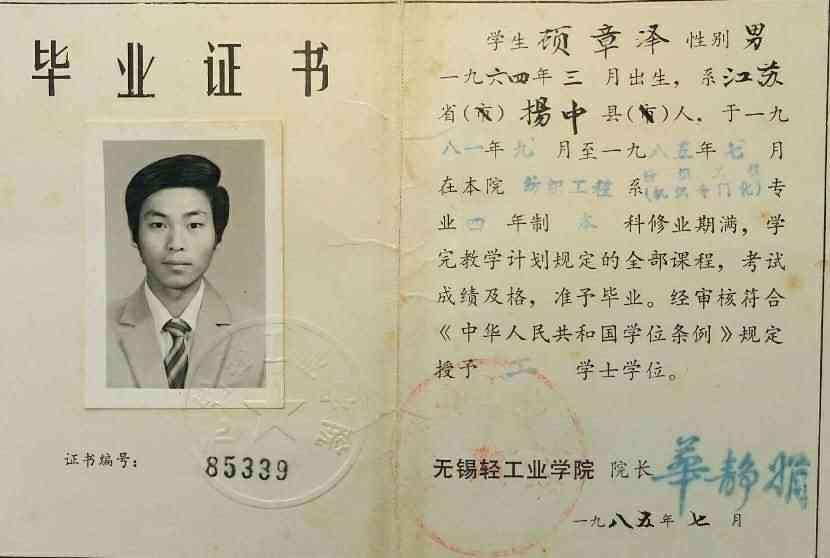 毕业证书
证书编号: 85339
学生 顾章泽 性别 男
一九六四年 三 月出生, 系江苏
省(市) 揚中 县(市)人. 于一九
八一年 九 月至一九八五年 七 月
在本院 纺织工程 系 纺织工程(机织专门化) 专
业 四 年制 本 科修业期满, 学
完教学计划规定的全部课程, 考试
成绩及格, 准予毕业。经审核符合
《中华人民共和国学位条例》规定
授予 工 学士学位。
无锡轻工业学院 院长 華静娟
一九八五年 七 月